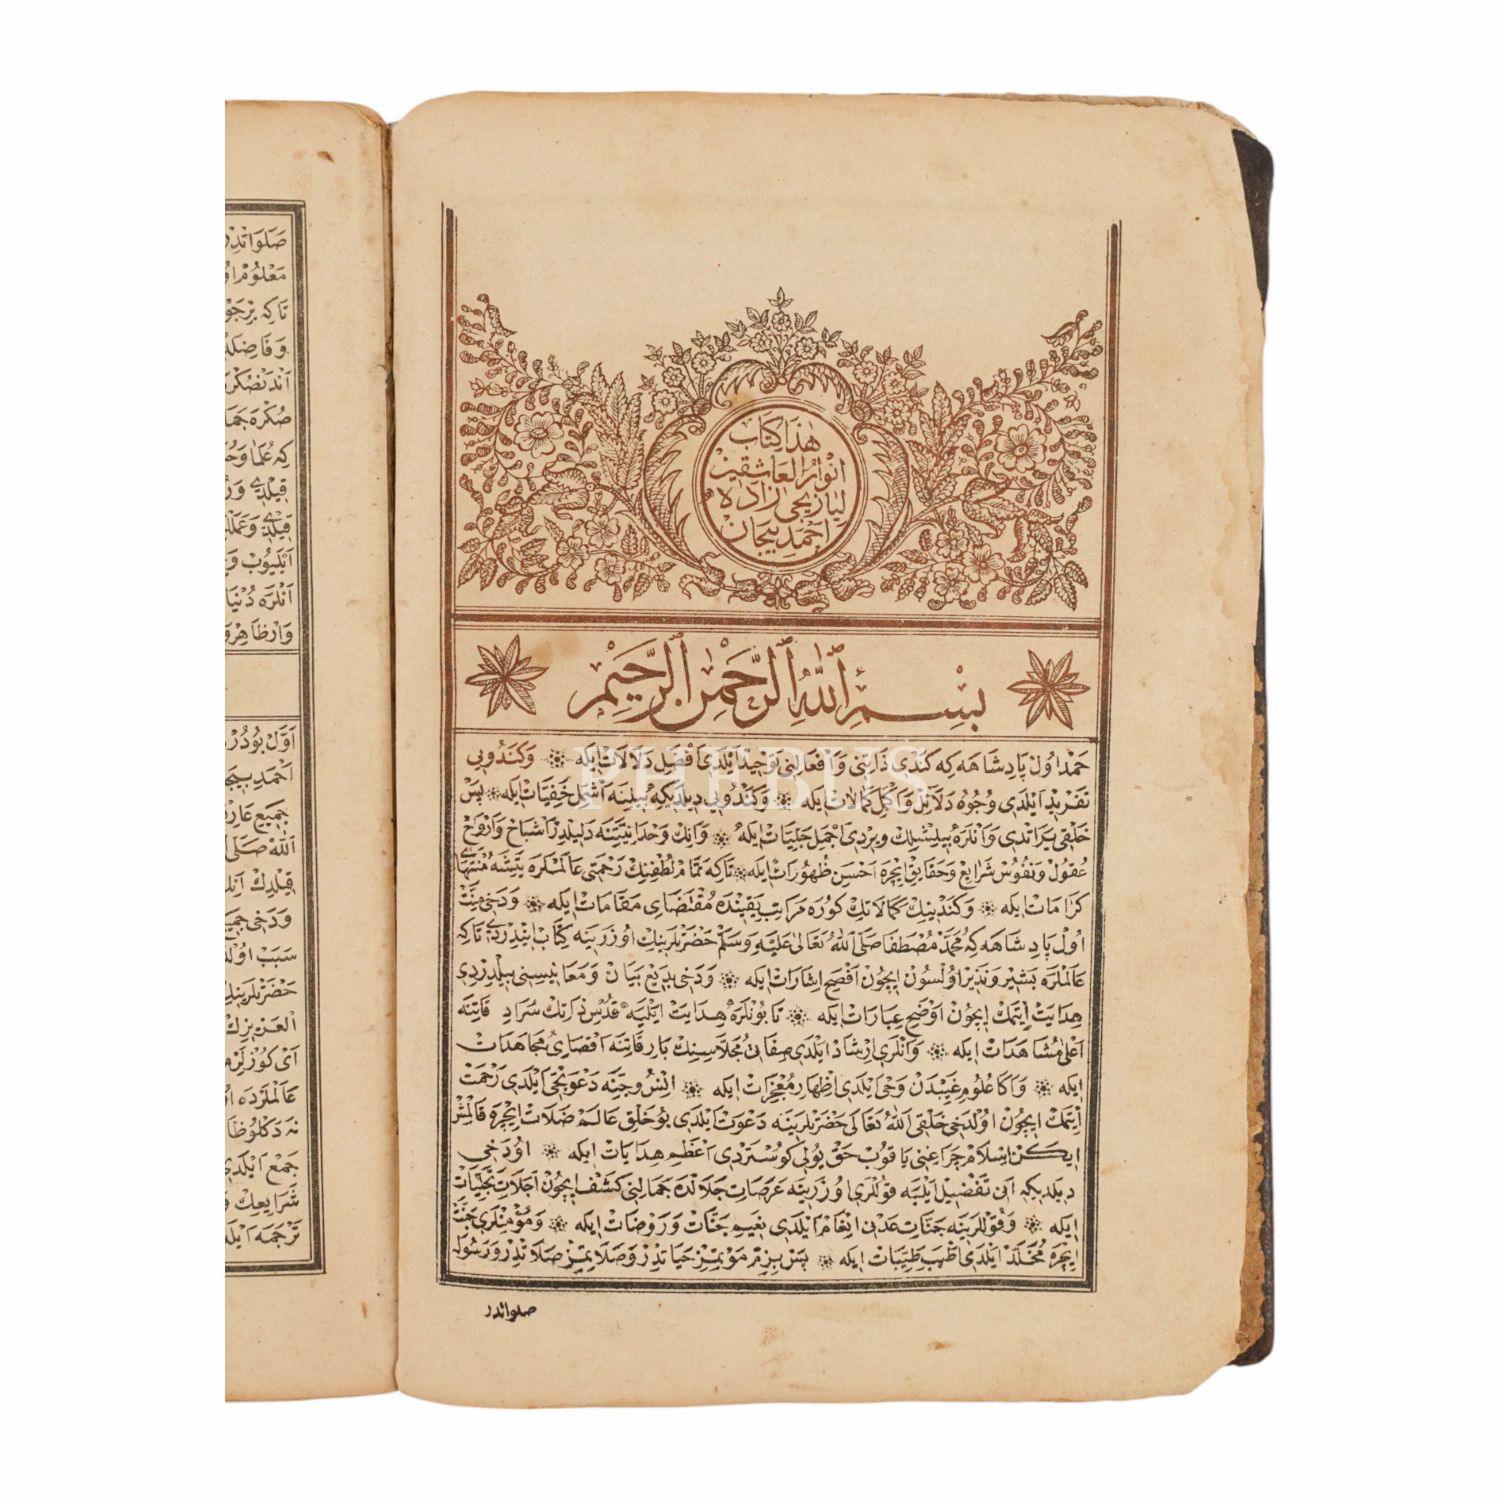 هٰذَا كِتَاب
اَنْوَارُ الْعَاشِقِينْ
لِيَازِيجِى زَادَه
اَحْمَدْ بِيجَانْ
بِسْمِ اللّٰهِ الرَّحْمٰنِ الرَّحِيمِ
حمد اول پادشاهه كه كندی ذاتنی و افعالنی توحید ایلدی افضل دلالات ایله ❊ و كندویی
تفرید ایلدی وجوه دلائل و اكمل كمالات ایله ❊ و كندویی دیلدیكه بیلینه اشمل خفیات ایله ❊ پس
خلقی یراتدی و انلره بیلیشلك ویردی اجمل جلیات ایله ❊ و انك وحدانیتنه دلیلدر اشباح و ارواح
عقول و نفوس شرایع و حقایق ایچره احسن ظهورات ایله ❊ تا كه تمام لطفنك رحمتی عالملره یتیشه منتهای
كرامات ایله ❊ و كندینك كمالاتك كوره مراتب یقینده مقتضای مقامات ایله ❊ و دخی منت
اول پادشاهه كه محمد مصطفا صلی الله تعالی علیه وسلم حضرتلرینك اوزرینه كتاب ایندردی تا كه
عالملره بشیر و نذیر اولسون ایچون افصح اشارات ایله ❊ و دخی بدیع بیان و معانیسنی بیلدردی
هدایت ایتمك ایچون اوضح عبارات ایله ❊ تا بونلره هدایت ایلیه قدس ذاتك سراد قاتنه
اعلی مشاهدات ایله ❊ و انلری ارشاد ایلدی صفات مجلاسنك بارقاتنه اقصای مجاهدات
ایله ❊ و اكا علوم غیبدن وحی ایلدی اظهار معجزات ایله ❊ انس و جنه دعوتچی ایلدی رحمت
ایتمك ایچون اولدخی خلقی الله تعالی حضرتلرینه دعوت ایلدی بو خلق عالم ضلالت ایچره قالمش
ایكن اسلام چراغنی یاقوب حق یولی كوستردی اعظم هدایات ایله ❊ اودخی
دیلدیكه انی تفضیل ایلیه قوللری اوزرینه عرصات جلالده جمالنی كشف ایچون اجلات تجلیات
ایله ❊ و قوللرینه جنات عدنی انعام ایلدی نعیم جنات و روضات ایله ❊ و مؤمنلری جنت
ایچره مخلد ایلدی اطیب طیبات ایله ❊ پس بزم موتمز حیاتدر و صلاتمز صلاتدر و رسوله
صلواتدر
صَلَوَاتْدِر
مَعْلُومْ
تَا كِه
وَ فَاضِل
صُكْرَه
كِه عُلَمَا
قِیلْدِی
قِیلْدِی وَ
اَیْلَیُوبْ
اَنْلَرَه دُنْیَا
وَارْ ظَاهِرْ
اَوَّلْ بُودُرْ
اَحْمَدْ بِیجَا
جَمِیعْ
اللّٰه صَلَّی
قِیلْدِكْ
وَ دَخِی
سَبَبْ
حَضْرَتْلَرِینِكْ
الْعَزِیزِكْ
عَالَمْلَرْدَه
جَمْعْ اَیْلَدِی
شَرَایِعِكْ
تَرْجَمَه اَیْلَدِ
PHEBUS